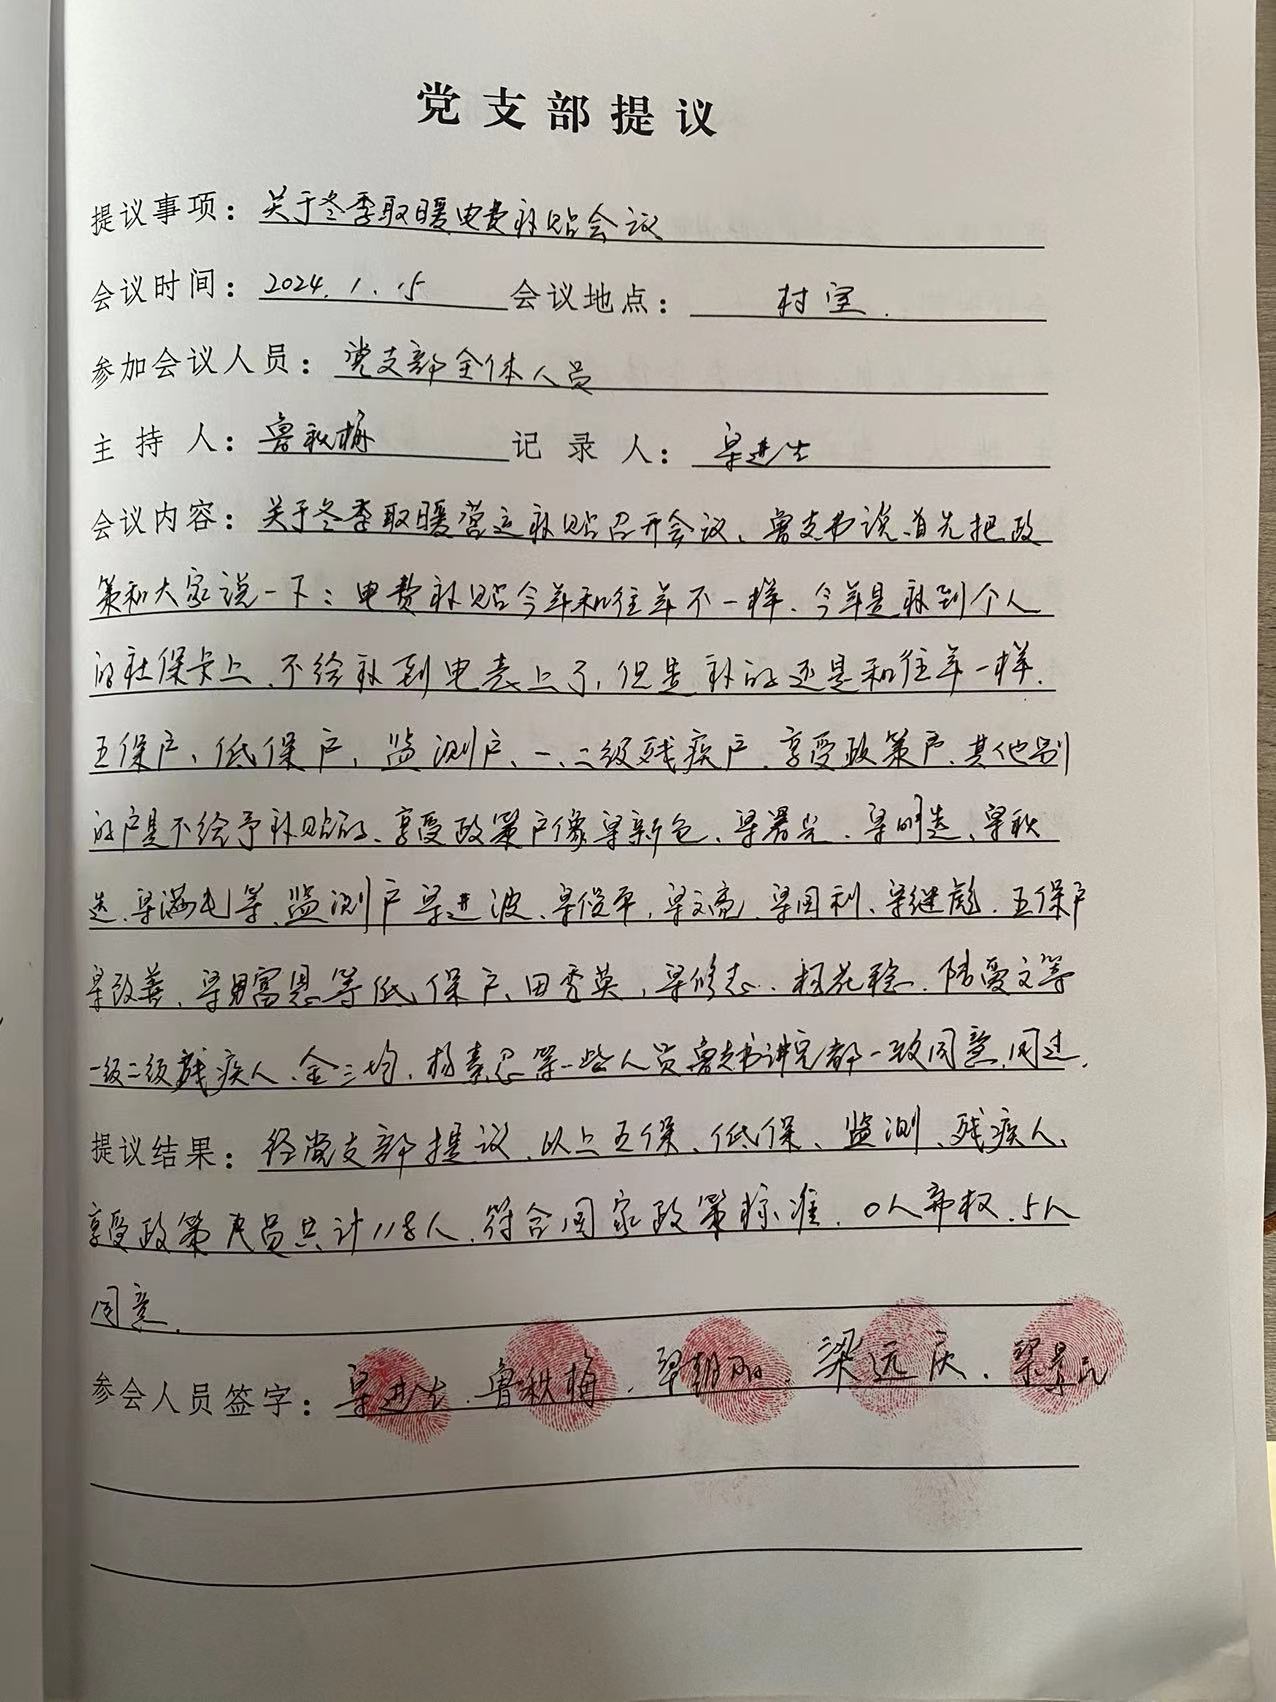 党支部提议
提议事项：关于冬季取暖电费补贴会议
会议时间：2024.1.15 会议地点：村室.
参加会议人员：党支部全体人员
主持人：鲁秋梅 记录人：梁进生
会议内容：关于冬季取暖营运补贴召开会议、鲁支书说首先把政
策和大家说一下：电费补贴今年和往年不一样.今年是补到个人
的社保卡上.不给补到电表上了,但是补的还是和往年一样.
五保户、低保户、监测户、一、二级残疾户.享受政策户、其他别
的户是不给予补贴的、享受政策户像梁新仓、梁
等、监测户梁进波、梁俊平,梁文亮、梁国利、梁继彪.五保户
梁改善、等低保户、田秀英,梁修志.等
一级二级残疾人、金三均.杨素忍等一些人员鲁支书讲完都一致同意,同过.
提议结果：经党支部提议.以上五保、低保、监测、残疾人、
享受政策户员共计118人.符合国家政策标准.0人弃权.5人
同意.
参会人员签字：梁进生.鲁秋梅.梁朝阳.梁远庆.梁景元